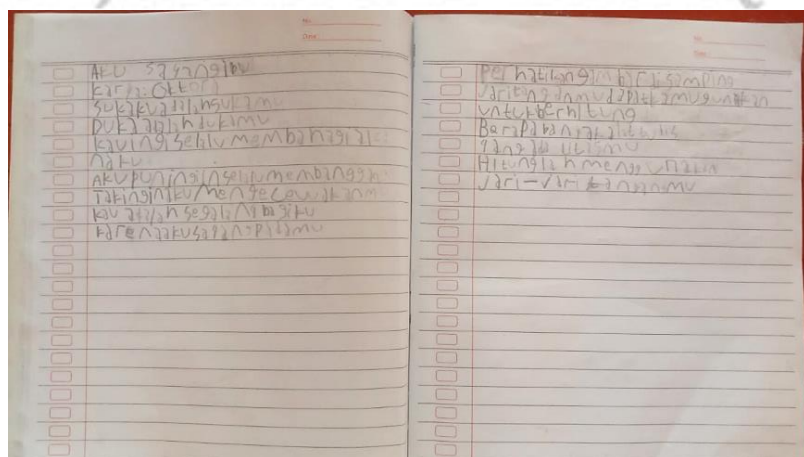 No.
Date
AKU sayang ibu
Karya: Oktora
Sukaku adalah sukamu
Dukaku adalah dukamu
kau ingin selalu membahagia
naku
Aku pun ingin selalu
Tak ingin aku mengecewakanm
kau adalah segalanya bagiku
karena aku sayang padamu
No.
Date
Perhatikan gambar disamping
Jari tanganmu dapat kamu gunakan
untuk berhitung
Berapa banyak
Hitunglah menggunakan
Jari-Jari tanganmu